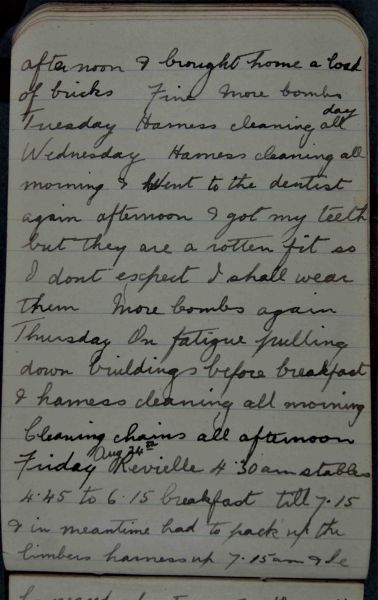 afternoon & brought home a load
of bricks Fine More bombs
Tuesday Harness cleaning all day
Wednesday Harness cleaning all
morning & Went to the dentist
again afternoon I got my teeth
but they are a rotten fit so
I dont expect I shall wear
them More bombs again
Thursday On fatigue pulling
down buildings before breakfast
& harness cleaning all morning
Cleaning chains all afternoon
Friday Aug 24th Revielle 4.30am stables
4.45 to 6.15 breakfast till 7.15
& in meantime had to pack up the
limbers harness up 7.15am &